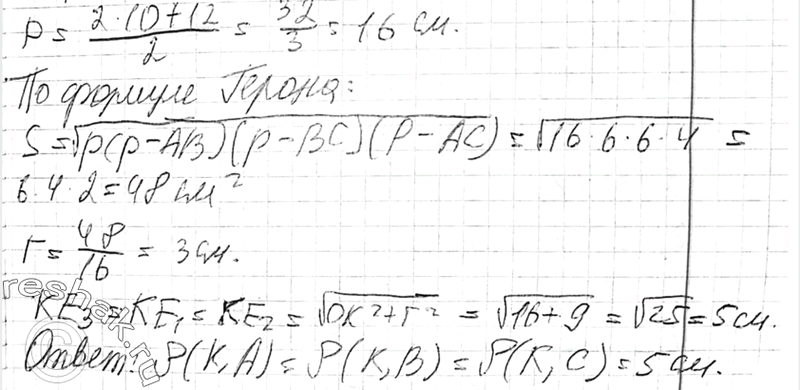 p = \frac{2·10+12}{2} = \frac{32}{3} = 16 см.
По формуле Герона:
S = \sqrt{p(p-AB)(p-BC)(p-AC)} = \sqrt{16·6·6·4} =
6·4·2=48 см²
r = \frac{48}{16} = 3 см.
KE₃ = KE₁ = KE₂ = \sqrt{OK²+r²} = \sqrt{16+9} = \sqrt{25} = 5 см.
Ответ: ρ(K, A) = ρ(K, B) = ρ(K, C) = 5 см.
reshak.ru